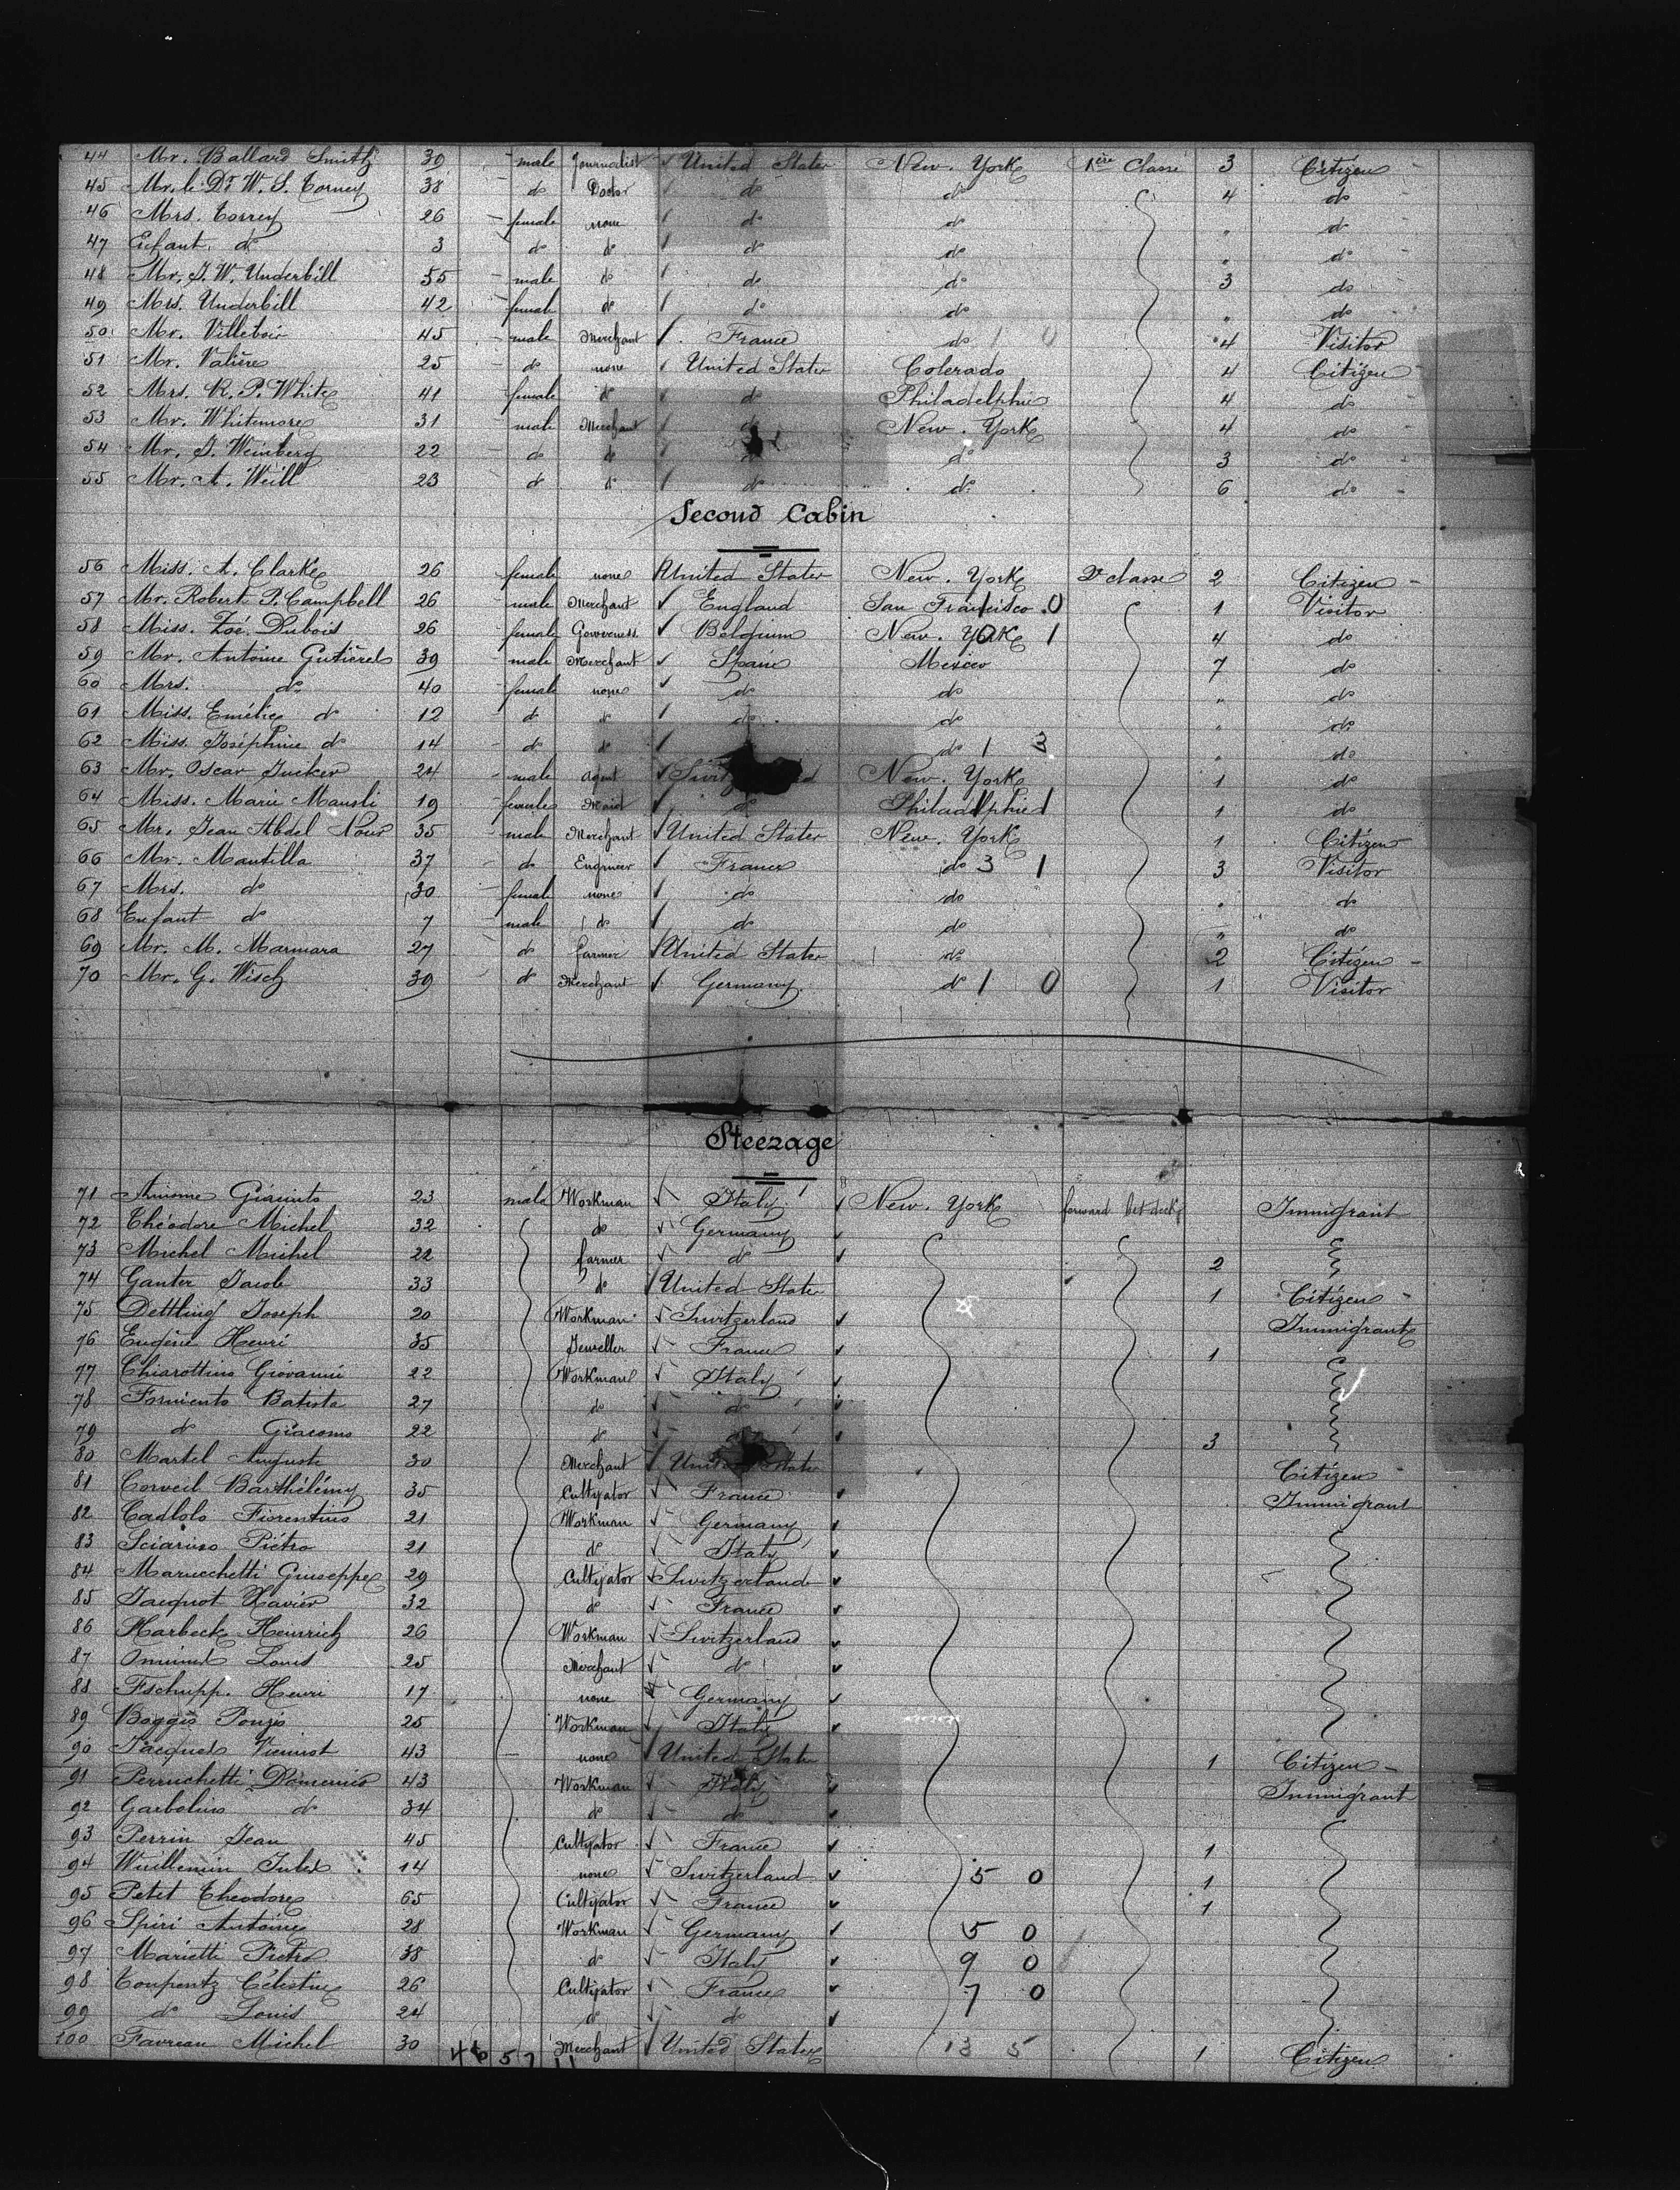 44 Mr. Ballard Smith 39 male Journalist United States New. York 1ère Classe 3 Citizen
45 Mr. le Dr W. S. Torrey 38 do Doctor do do 4 do
46 Mrs. Torrey 26 female none do do " do
47 Enfant do 3 do do do do " do
48 Mr. J. W. Underhill 55 male do do do 3 do
49 Mrs. Underhill 42 female do do do " do
50 Mr. Villebois 45 male Merchant France do 1 0 4 Visitor
51 Mr. Valière 25 do none United States Colerado 4 Citizen
52 Mrs. R. P. White 41 female do do Philadelphie 4 do
53 Mr. Whitemore 31 male Merchant do New. York 4 do
54 Mr. J. Weinberg 22 do do do do 3 do
55 Mr. A. Weill 23 do do do do 6 do
Second Cabin
56 Miss. A. Clarke 26 female none United States New. York 2e classe 2 Citizen
57 Mr. Robert P. Campbell 26 male Merchant England San Francisco 0 1 Visitor
58 Miss. Zoé Dubois 26 female Governess Belgium New. York 1 4 do
59 Mr. Antoine Gutièrel 39 male Merchant Spain Mexico 7 do
60 Mrs. do 40 female none do do " do
61 Miss. Emélie do 12 do do do do " do
62 Miss. Joséphine do 14 do do do 1 3 " do
63 Mr. Oscar Jucker 24 male Agent New. York 1 do
64 Miss. Marie Mausli 19 females Maid do Philadelphie 1 do
65 Mr. Jean Abdel Nour 35 male Merchant United States New. York 1 Citizen
66 Mr. Mantilla 37 do Engineer France do 3 1 3 Visitor
67 Mrs. do 30 female none do do " do
68 Enfant do 7 male do do do " do
69 Mr. M. Marmara 27 do farmer United States do 2 Citizen
70 Mr. G. Wisch 39 do Merchant Germany do 1 0 1 Visitor
Steezage
71 Giacinto 23 male Workman Italy New. York forward bet deck Immigrant
72 Théodore Michel 32 do Germany
73 Michel Michel 22 farmer do 2
74 Ganter Jacob 33 do United States 1 Citizen
75 Dettling Joseph 20 Workman Switzerland Immigrant
76 Eugène Henri 35 Jeweller France 1
77 Chiarottino Giovanni 22 Workman Italy
78 Formento Batista 27 do do
79 do Giacomo 22 do 3
80 Martel Auguste 30 Merchant United States Citizen
81 Corveil Barthélémy 35 Cultivator France Immigrant
82 Cadlolo Fiorentino 21 Workman Germany
83 Sciarino Piétro 21 do Italy
84 Marucchetti Giuseppe 29 Cultivator Switzerland
85 Jacquot Xavier 32 do France
86 Harbeck Heinrich 26 Workman Switzerland
87 Louis 25 Merchant do
88 Fschupp. Henri 17 none Germany
89 Boggio Ponzio 25 Workman Italy
90 Jacques Viennot 43 none United States 1 Citizen
91 Perruchetti Domenico 43 Workman Italy Immigrant
92 Garbolino do 34 do do
93 Perrin Jean 45 Cultivator France 1
94 Wuillemin Jules 14 none Switzerland 5 0 1
95 Petit Theodore 65 Cultivator France 1
96 Spiri Antoine 28 Workman Germany 5 0
97 Marietti Pietro 38 do Italy 9 0
98 Toupentz Célestine 26 Cultivator France 7 0
99 do Louis 24 do do
100 Favreau Michel 30 Merchant United States 13 5 1 Citizen